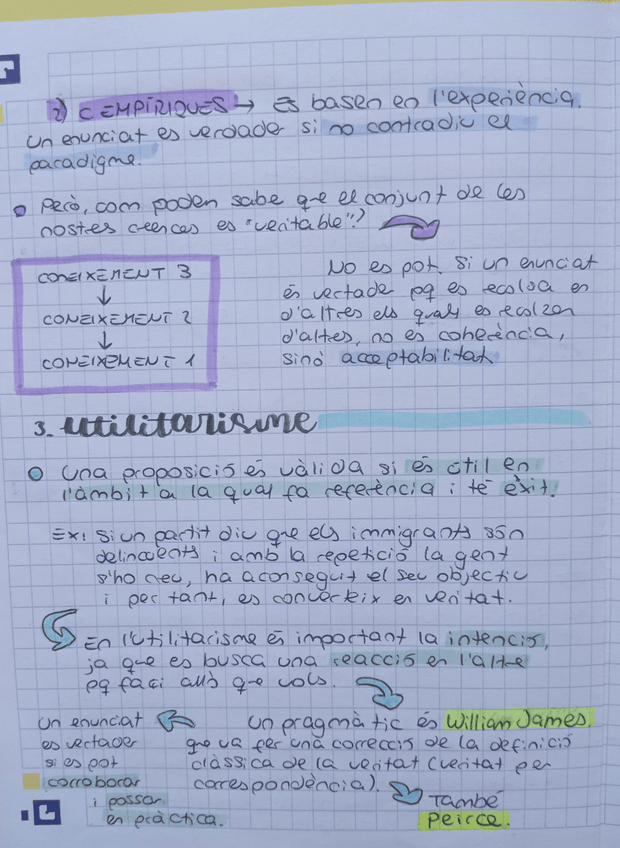 2) C EMPÍRIQUES → Es basen en l'experiència.
Un enunciat es verdader si no contradiu el
paradigme.
Però, com poden sabe que el conjunt de les
nostres creences es "veritable"?
CONEIXEMENT 3
↓
CONEIXEMENT 2
↓
CONEIXEMENT 1
No es pot. Si un enunciat
és vertade pq es recolza en
d'altres els quals es recolzen
d'altres, no es coherència,
sinó acceptabilitat
3. Utilitarisme
Una proposició és vàlida si és útil en
l'àmbit a la qual fa referència i té èxit.
Ex: Si un partit diu que els immigrants són
delincuents i amb la repetició la gent
s'ho creu, ha aconseguit el seu objectiu
i per tant, es converteix en veritat.
En l'utilitarisme és important la intenció,
ja que es busca una reacció en l'altre
pq faci allò que vols.
Un pragmàtic és William James,
que va fer una correcció de la definició
clàssica de la veritat (veritat per
correspondència).
També
Peirce.
Un enunciat
es vertader
si es pot
corroborar
i possar
en pràctica.